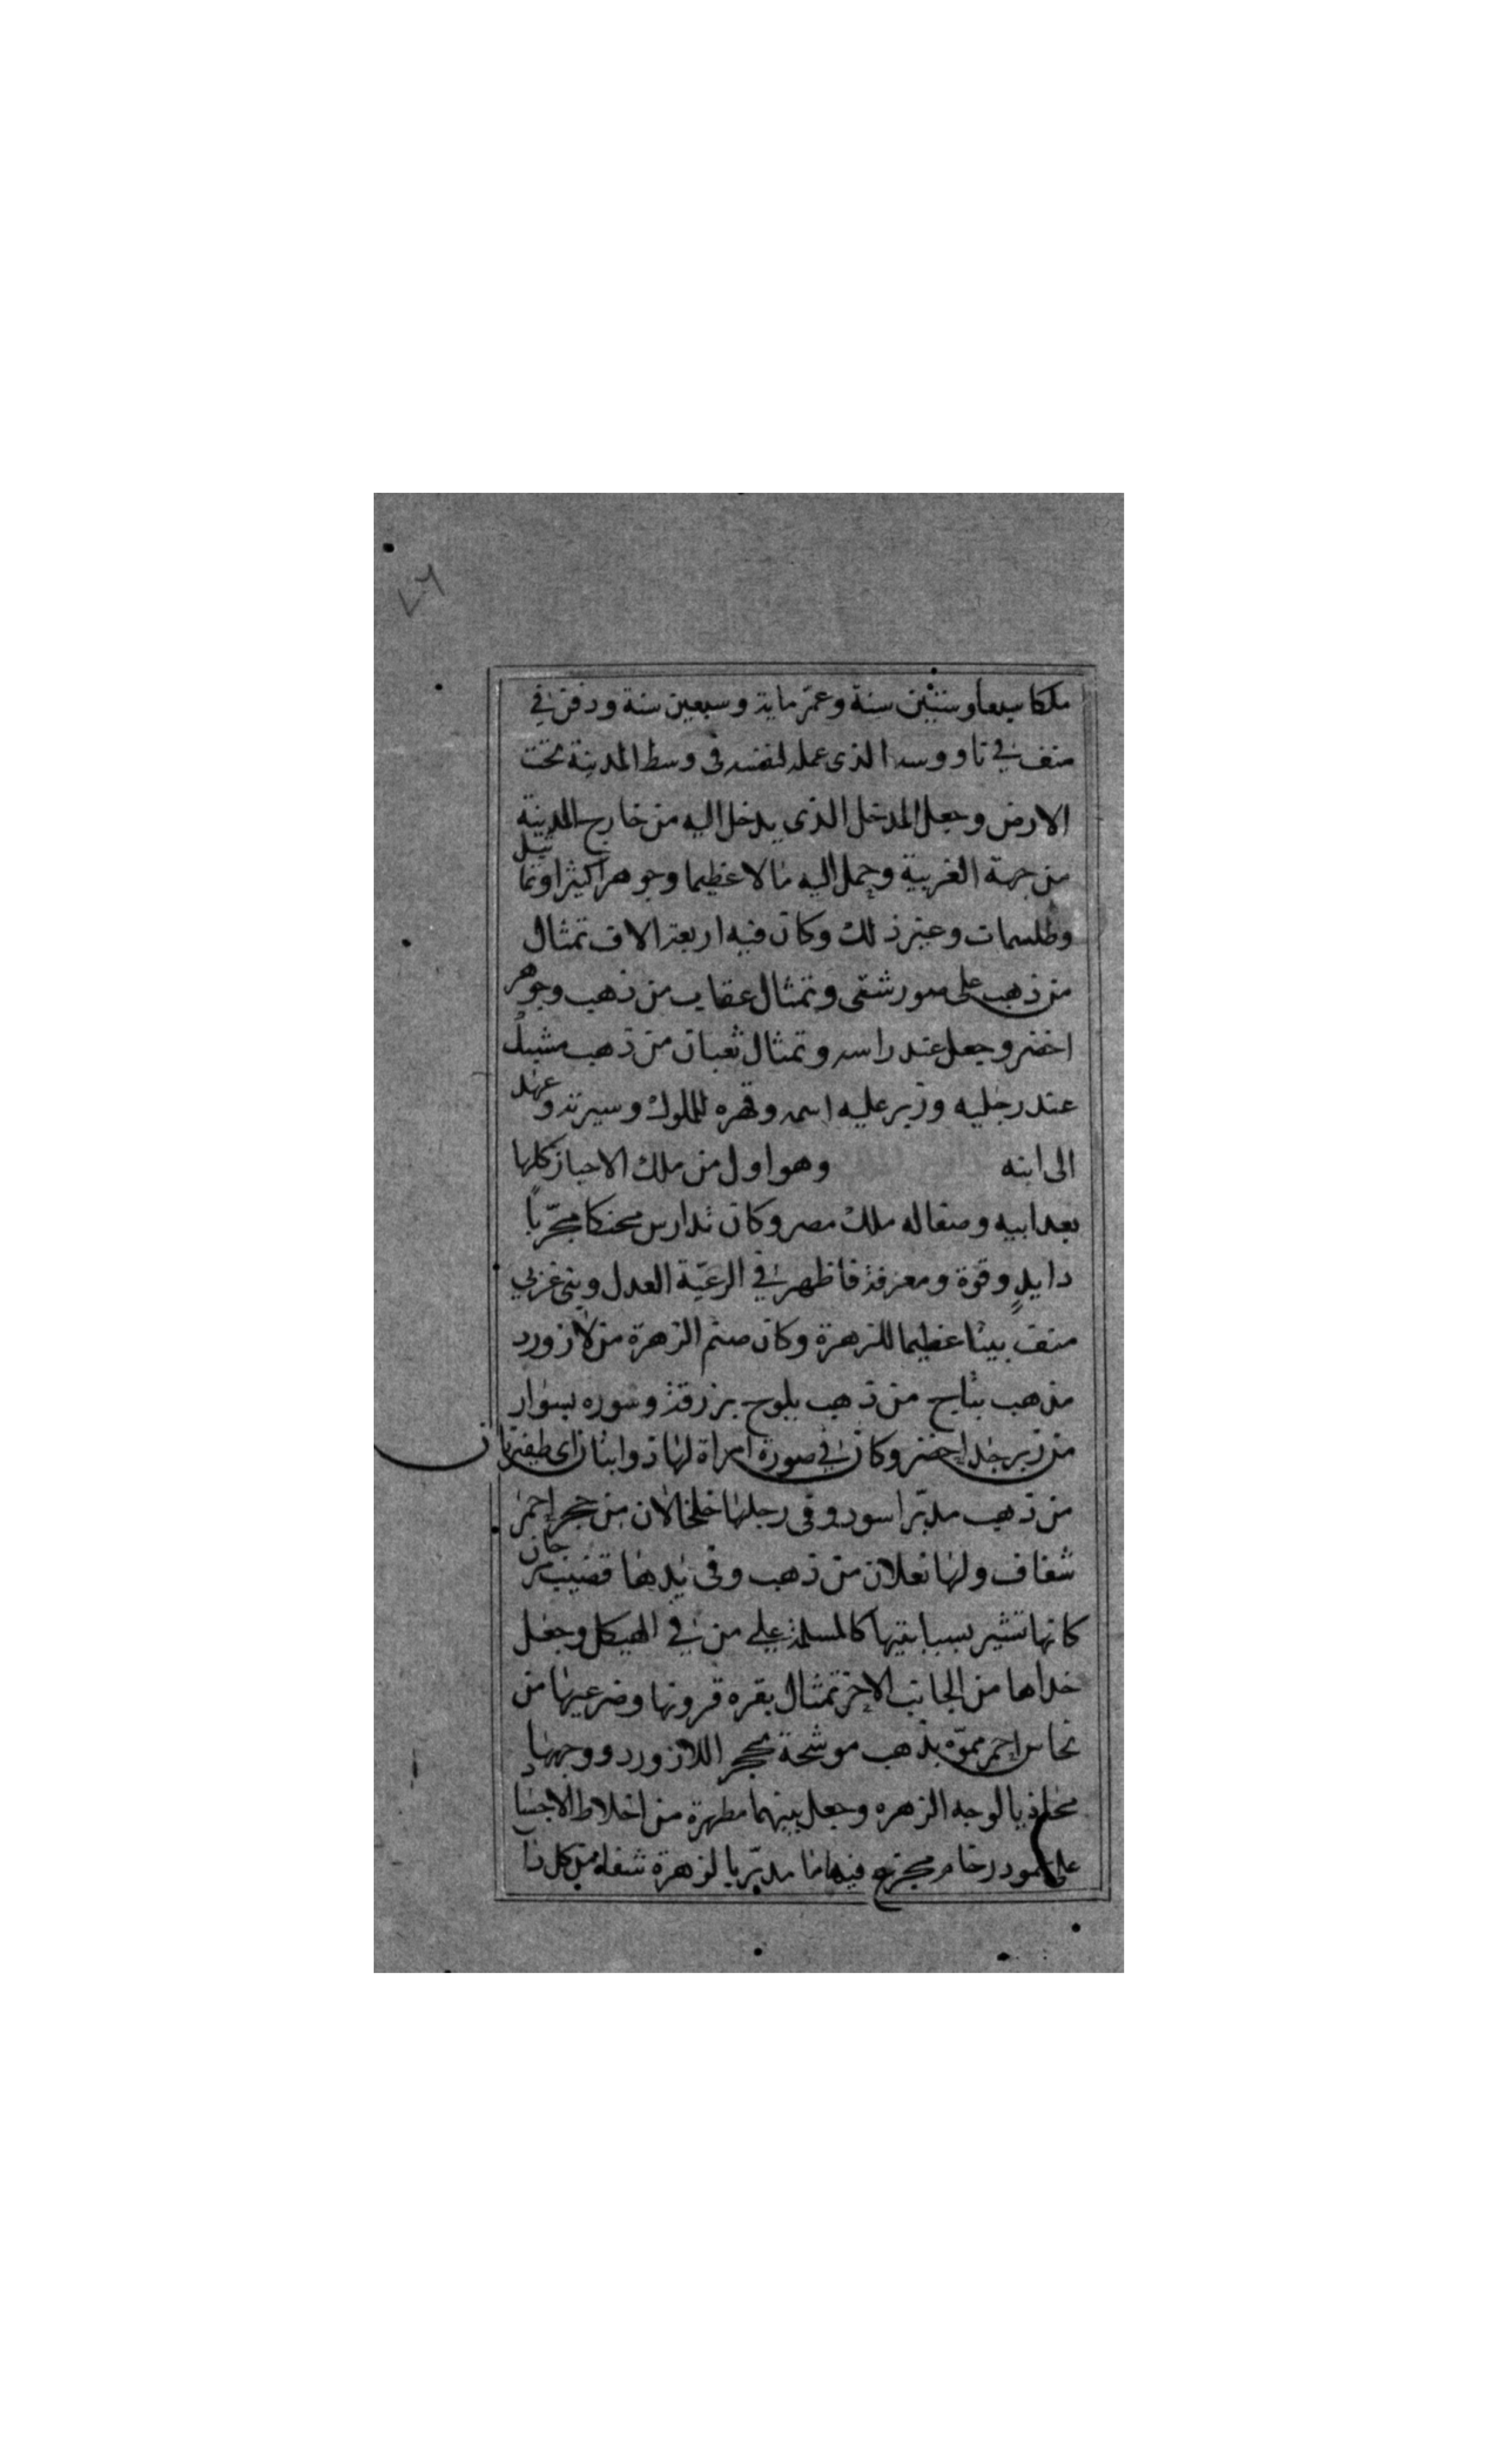 ٧٦
ملكا سبعا وستين سنة وعمر ماية وسبعين سنة ودفن في
منف في ناووسه الذى عمله لنفسه فى وسط المدينة تحت
الارض وجعل المدخل الذى يدخل اليه من خارج المدينة
من جهة الغربية وحمل اليه مالا عظيما وجوهرا كثيرا وتماثيل
وطلسمات وغير ذلك وكان فيه اربعة الاف تمثال
من ذهب على صور شتى وتمثال عقاب من ذهب وجوهر
اخضر وجعل عند راسه وتمثال ثعبان من ذهب مشبك
عند رجليه وزبر عليه اسمه وقهره للملوك وسيرته وعهد
الى ابنه وهو اول من ملك الاحياز كلها
بعد ابيه وصفا له ملك مصر وكان تدارس محنكا مجرّبا
دا ايدٍ وقوة ومعرفة فاظهر في الرعيّة العدل وبنى غربي
منف بيتا عظيما للزهرة وكان صنم الزهرة من لازورد
مذهب بتاج من ذهب يلوح بزرقة وسوره بسوار
من زبرجد اخضر وكان في صورة امراة لها ذوابتان اى ظفيرتان
من ذهب مدبّر اسود وفى رجلها خلخالان من حجر احمر
شفاف ولها نعلان من ذهب وفى يدها قضيب مرجان
كانها تشير بسبابتيها كالمسلمة على من في الهيكل وجعل
خداها من الجانب الاخر تمثال بقره قرونها وضرعيها من
نحاس احمر مموّه بذهب موشحة بحجر اللازورد ووجهها
محاذيا لوجه الزهره وجعل بينهما مطهرة من اخلاط الاجسا
على عمود رخام مجزع فيها ما مدبّر بالزهرة شفا من كل دا